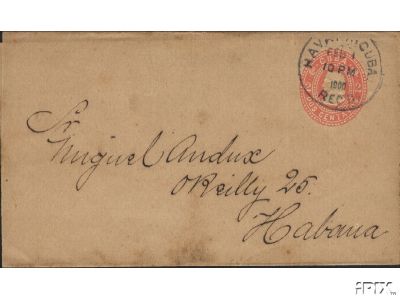 HAVANA CUBA
FEB
10 PM
1900
REC'D
CUBA
Sr
Miguel Andux
O'Reilly 25.
Habana
iPIX